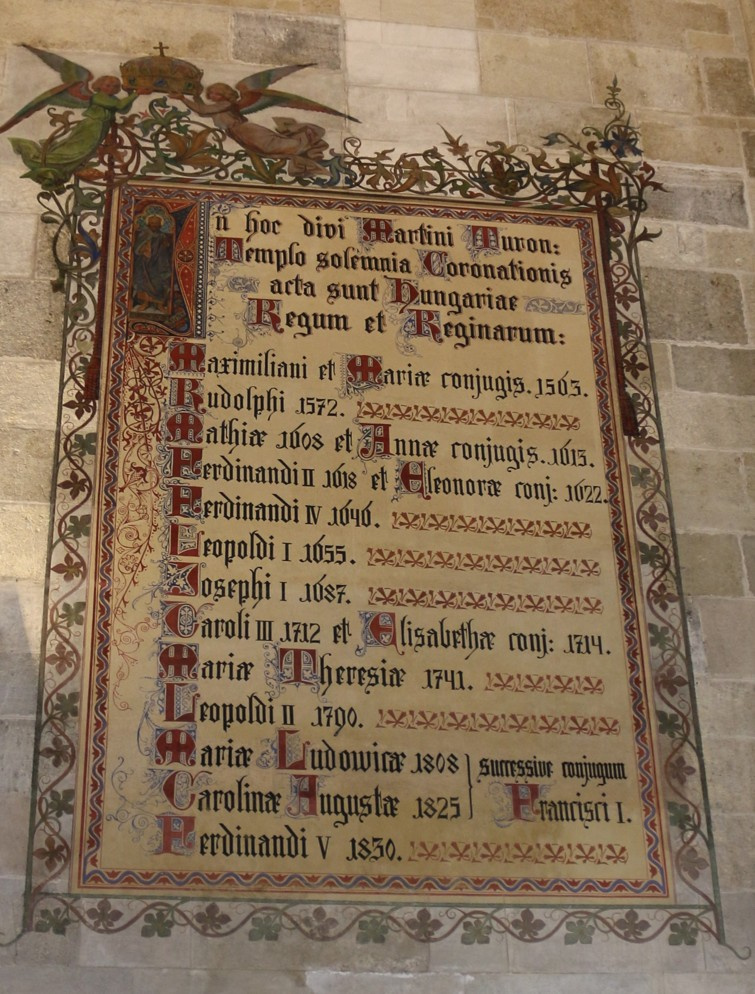 In hoc divi Martini Turon:
Templo solemnia Coronationis
acta sunt Hungariae
Regum et Reginarum:
Maximiliani et Mariæ conjugis. 1563.
Rudolphi 1572.
Mathiæ 1608 et Annæ conjugis. 1613.
Ferdinandi II 1618 et Eleonoræ conj: 1622.
Ferdinandi IV 1646.
Leopoldi I 1655.
Josephi I 1687.
Caroli III 1712 et Elisabethæ conj: 1714.
Mariæ Theresiæ 1741.
Leopoldi II 1790.
Mariæ Ludowicæ 1808 successive conjugum
Carolinæ Augustæ 1825 Francisci I.
Ferdinandi V 1830.